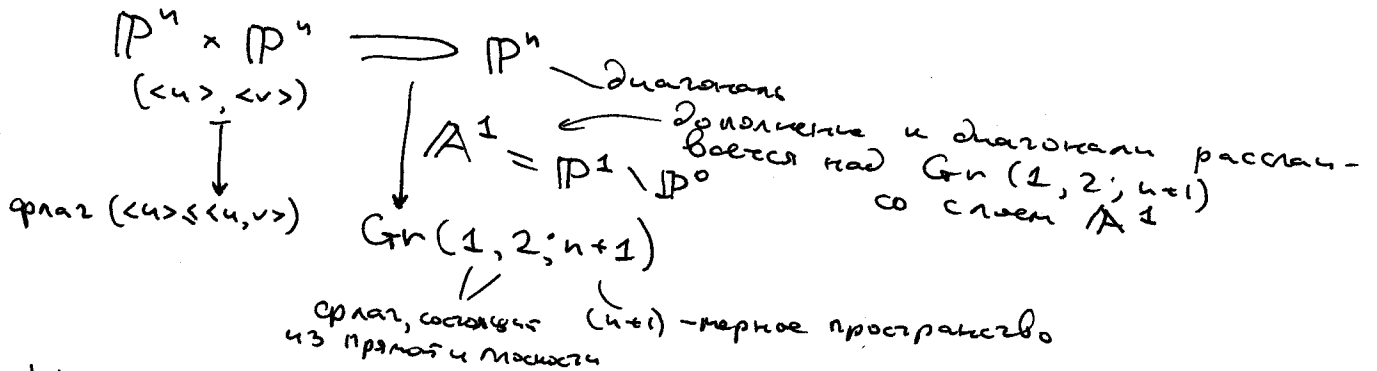 ℙⁿ × ℙⁿ ⊃ ℙⁿ
диагональ
(<u>, <v>)
дополнение к диагонали расслаи-
вается над Gr(1,2;n+1)
со слоем 𝔸¹
𝔸¹ = ℙ¹ \ ℙ⁰
флаг (<u>≤<u,v>)
Gr(1,2;n+1)
флаг, состоящий
из прямой и плоскости
(n+1)-мерное пространство